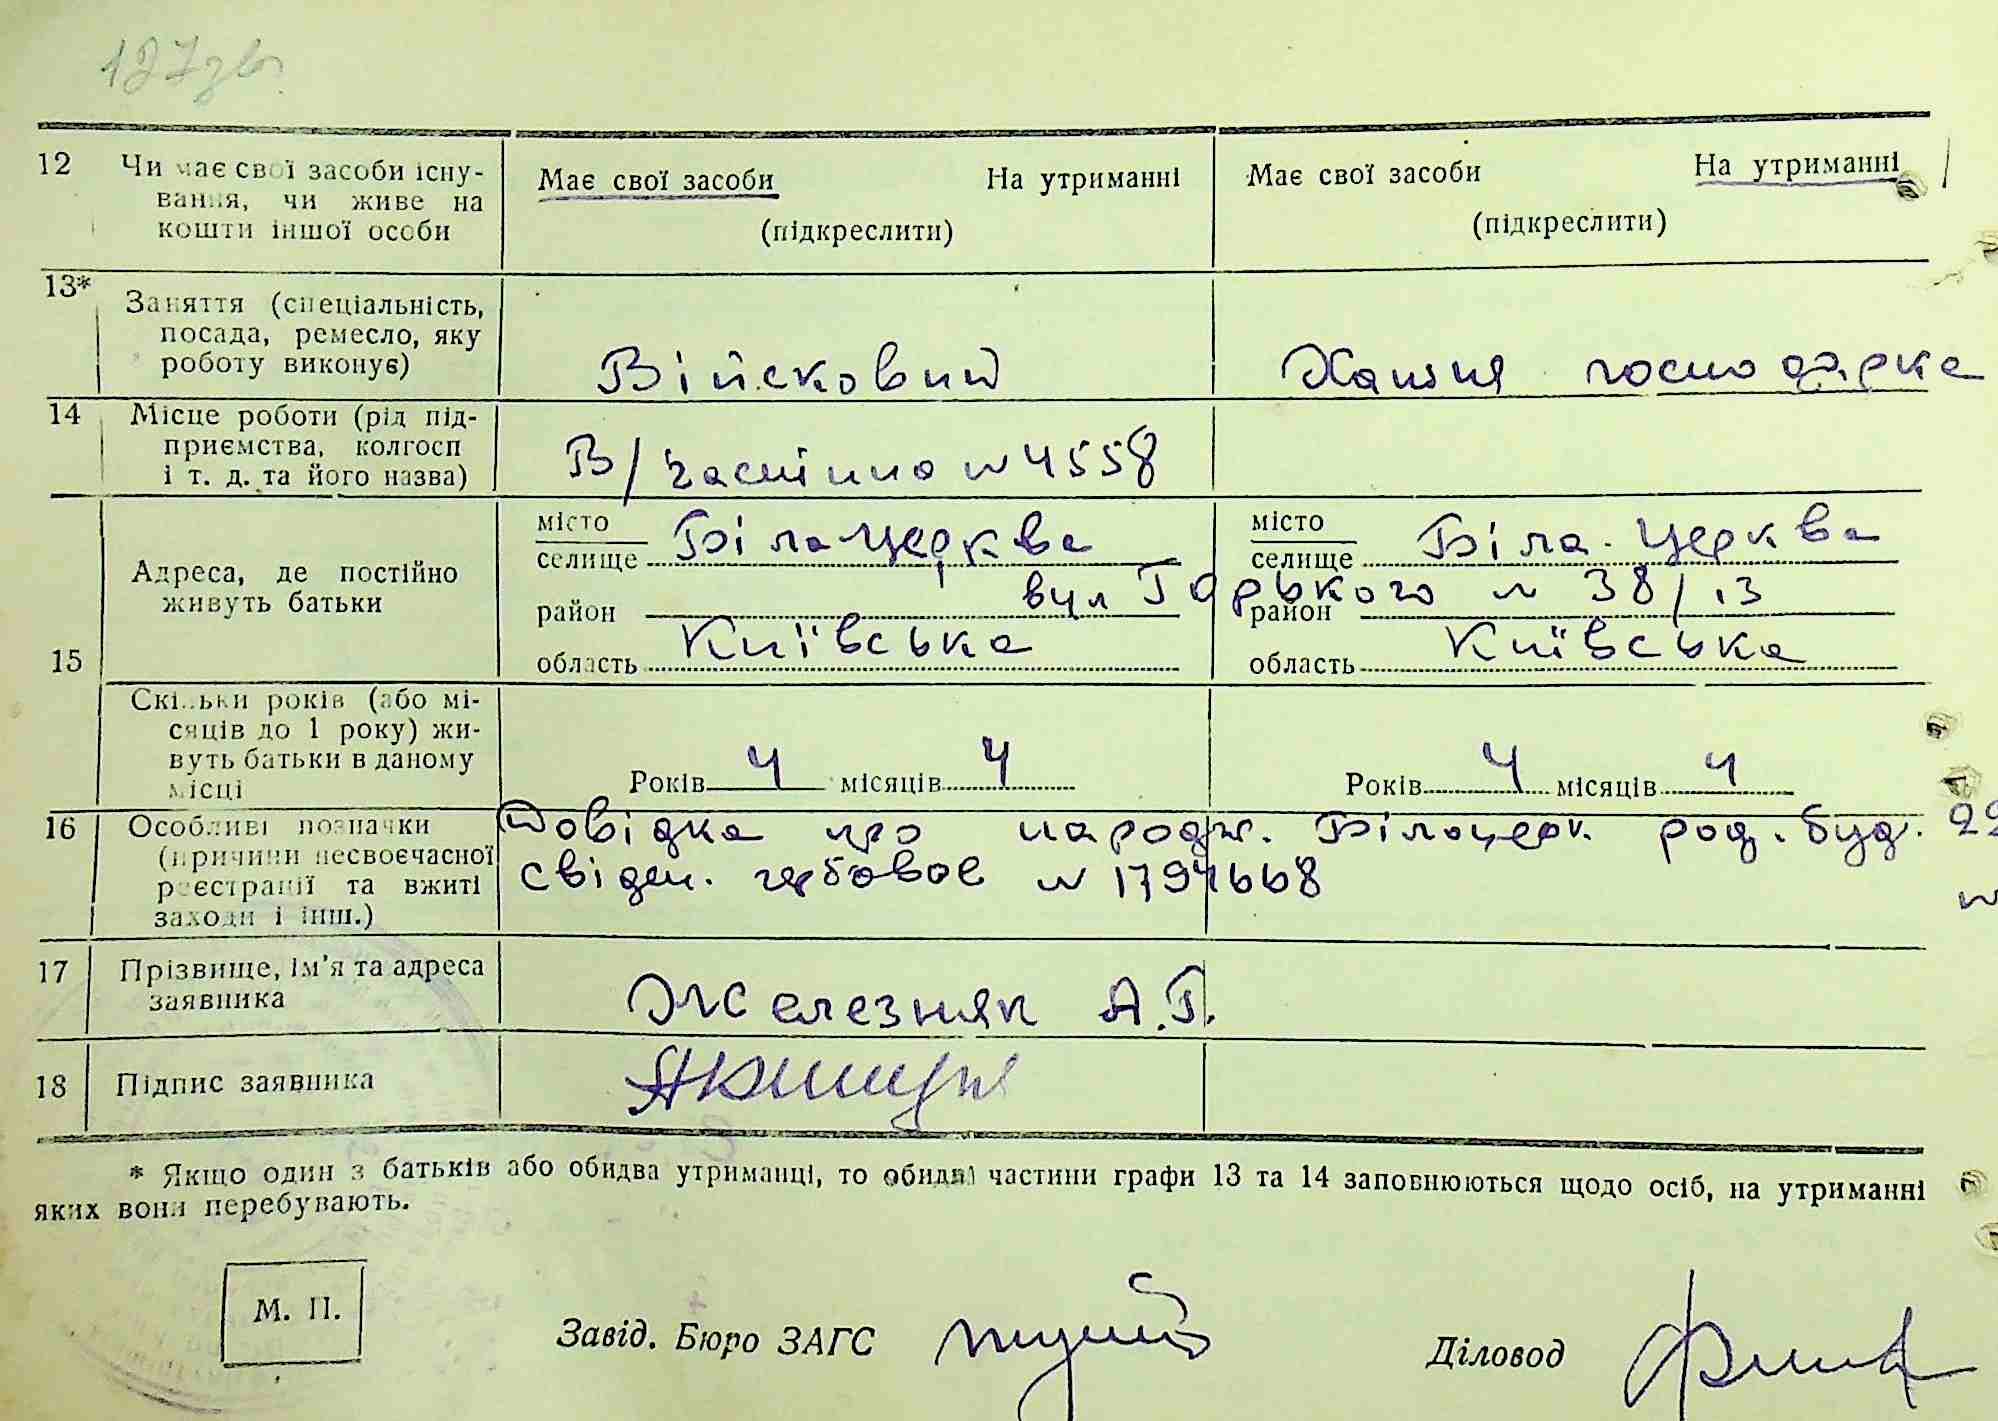 127зв.
12 Чи має свої засоби існу-
вання, чи живе на
кошти іншої особи
Має свої засоби На утриманні
(підкреслити)
Має свої засоби На утриманні
(підкреслити)
13* Заняття (спеціальність,
посада, ремесло, яку
роботу виконує)
Військовий
Хатня господарка
14 Місце роботи (рід під-
приємства, колгосп
і т. д. та його назва)
В/частина № 4558
15 Адреса, де постійно
живуть батьки
місто
селище Біла Церква
район
область Київська
місто
селище Біла. Церква
вул Горького № 38/13
район
область Київська
Скільки років (або мі-
сяців до 1 року) жи-
вуть батьки в даному
місці
Років 4 місяців 4
Років 4 місяців 4
16 Особливі позначки
(причини несвоєчасної
реєстрації та вжиті
заходи і інш.)
Довідка про народж. Білоцерк. род. буд. 22
свіден. гербовое №
17 Прізвище, ім'я та адреса
заявника
Железняк А.Г.
18 Підпис заявника
* Якщо один з батьків або обидва утриманці, то обидві частини графи 13 та 14 заповнюються щодо осіб, на утриманні
яких вони перебувають.
М. П.
Завід. Бюро ЗАГС
Діловод